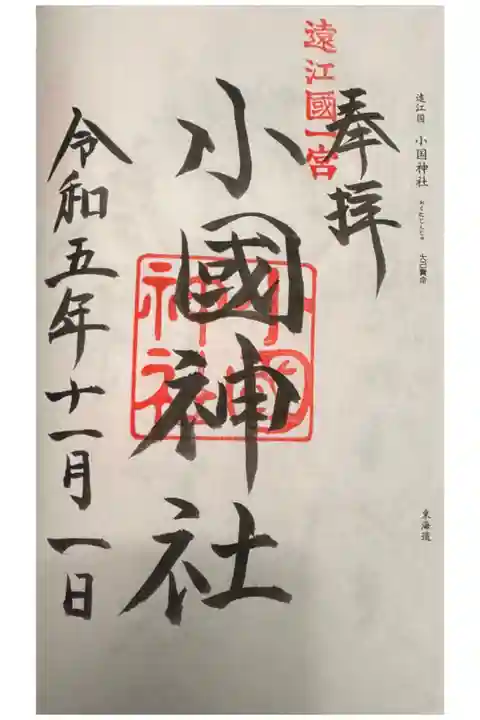 遠江国 小国神社 おくにじんじゃ 大己貴命
東海道
奉拝
遠江國一宮
小國神社
小國神社
令和五年十一月一日